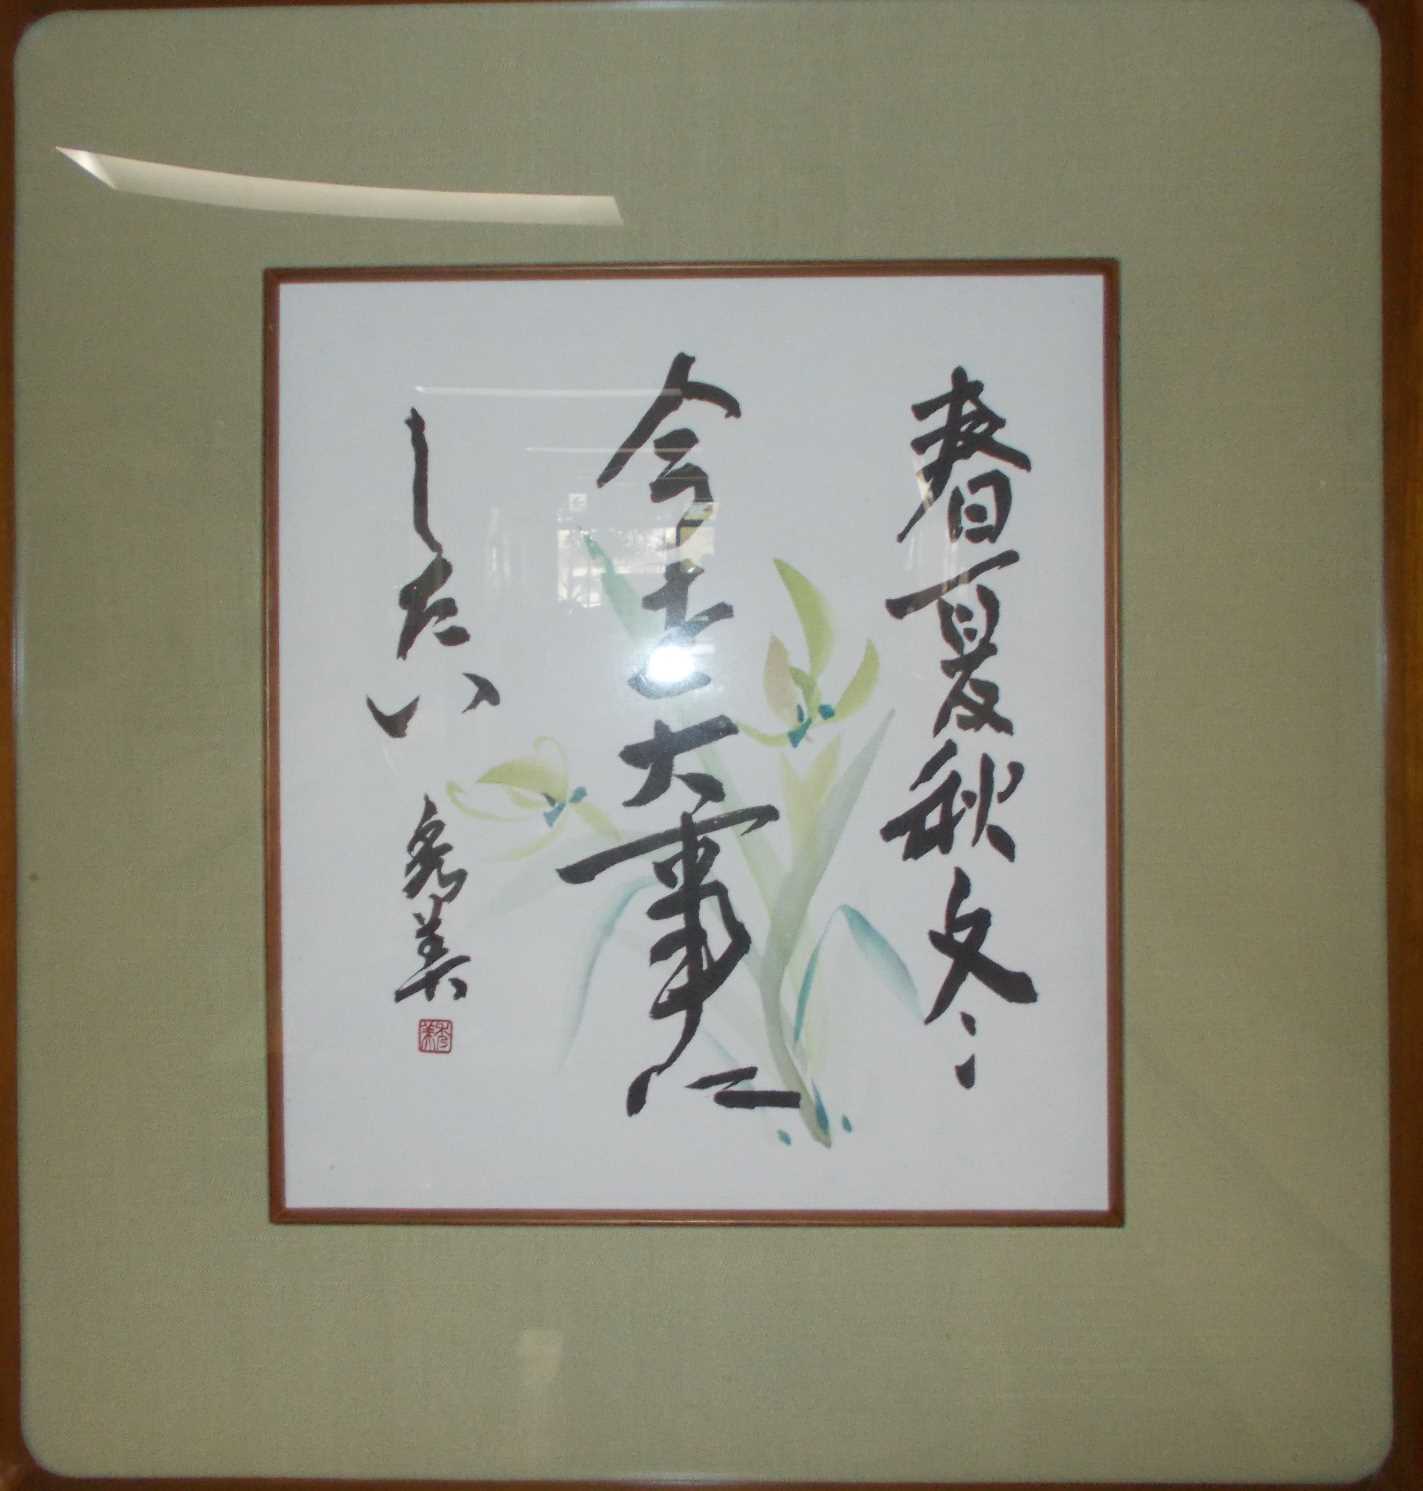 春夏秋冬
今を大事に
したい
秀美
秀美